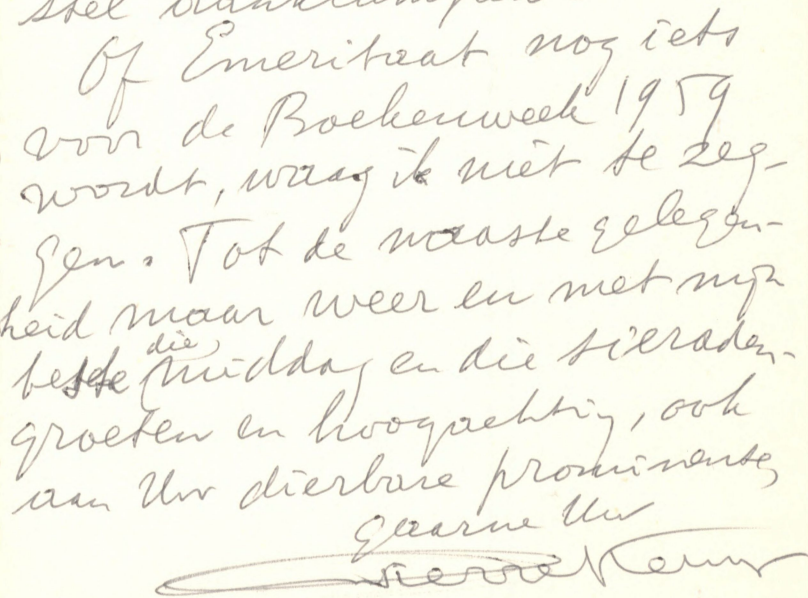 Of Emeritaat nog iets
voor de Boekenweek 1959
wordt, waag ik niet te zeg-
gen. Tot de naaste gelegen-
heid maar weer en met mijn
beste (die middag en die sieraden-
groeten en hoogachting, ook
aan Uw dierbare prominente,
gaarne Uw
Pierre Kemp